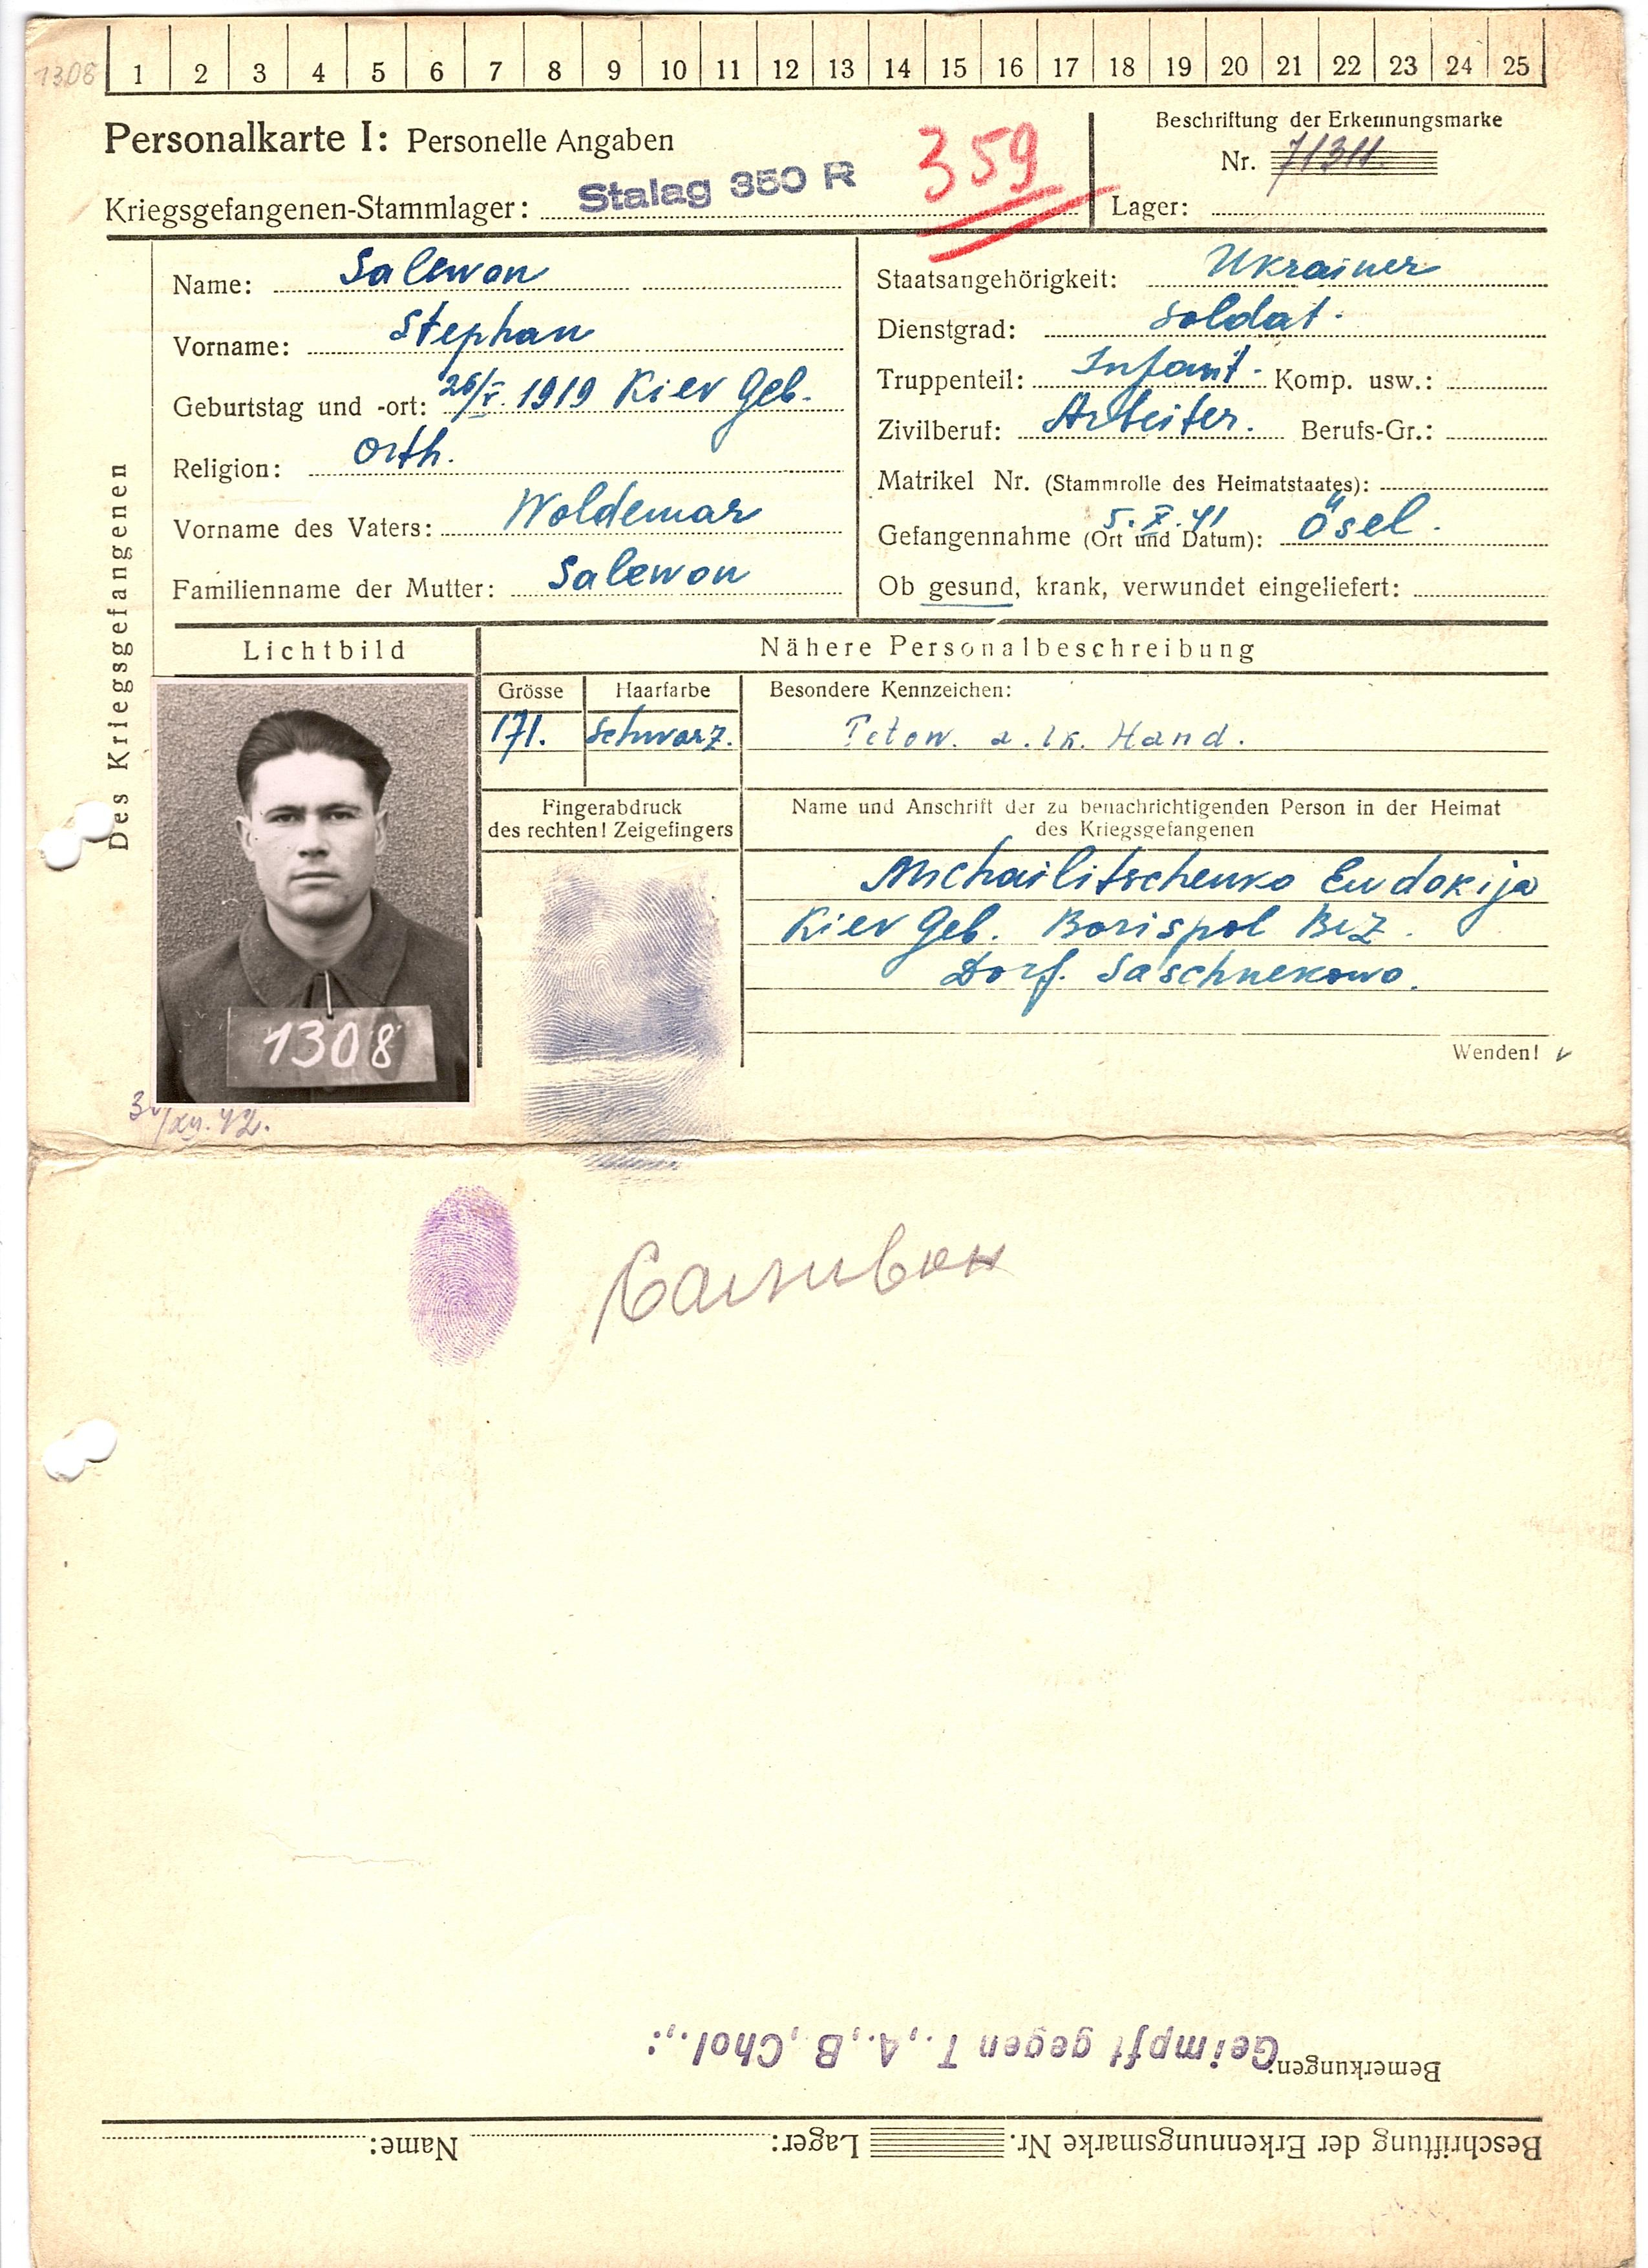 1308
1 2 3 4 5 6 7 8 9 10 11 12 13 14 15 16 17 18 19 20 21 22 23 24 25
Personalkarte I: Personelle Angaben
359
Beschriftung der Erkennungsmarke
Nr.
Kriegsgefangenen-Stammlager: Stalag 350 R
Lager:
Des Kriegsgefangenen
Name: Salewon
Vorname: Stephan
Geburtstag und -ort: 26/V. 1919 Kiev Geb.
Religion: Orth.
Vorname des Vaters: Woldemar
Familienname der Mutter: Salewon
Staatsangehörigkeit: Ukrainer
Dienstgrad: Soldat.
Truppenteil: Infant. Komp. usw.:
Zivilberuf: Arbeiter. Berufs-Gr.:
Matrikel Nr. (Stammrolle des Heimatstaates):
Gefangennahme (Ort und Datum): 5.X.41 Ösel.
Ob gesund, krank, verwundet eingeliefert:
Lichtbild
Nähere Personalbeschreibung
Grösse
171.
Haarfarbe
Schwarz.
Besondere Kennzeichen:
Tetow. a. lk. Hand.
Fingerabdruck
des rechten! Zeigefingers
Name und Anschrift der zu benachrichtigenden Person in der Heimat
des Kriegsgefangenen
Michailitschenko Eudokija
Kiev Geb. Borispol Bez.
Dorf. Saschnekowo.
Wenden!
1308
Bemerkungen: Geimpft gegen T.,A.,B,Chol.,:
Beschriftung der Erkennungsmarke Nr. Lager: Name: